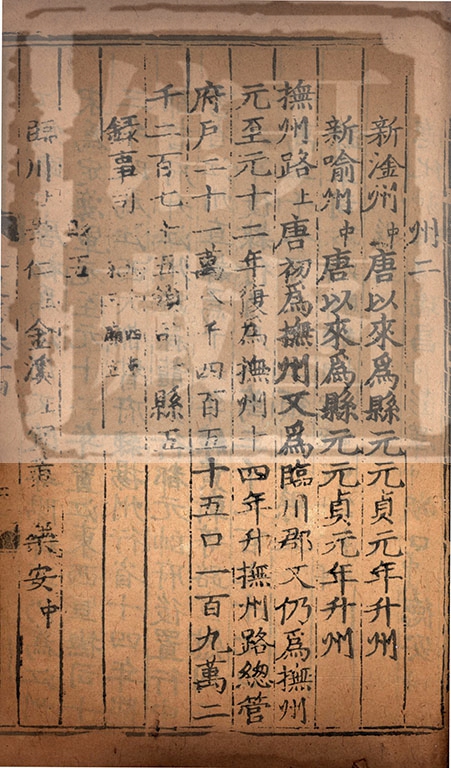 州二
新淦州中唐以來爲縣元元貞元年升州
新喻州中唐以來爲縣元元貞元年升州
撫州路上唐初爲撫州又爲臨川郡又仍爲撫州
元至元十二年復爲撫州十四年升撫州路總管
府戶二十一萬八千四百五十五口一百九萬二
千二百七十五領司一縣五
錄事司
縣五
臨川上崇仁上金溪上宜黃樂安中